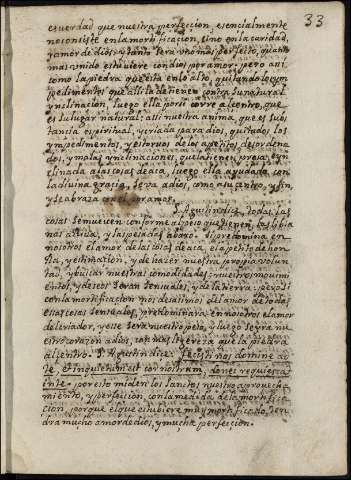 33
es verdad que nuestra perfeccion, esencialmente
no consiste en la mortificacion, sino en la caridad,
y amor de dios, y tanto sera uno mas perfeto, quanto
mas unido estubiere con dios por amor. pero asi
como la piedra que esta en lo alto, quitando los ym
pedimentos que alli la detienen contra su natural
ynclinacion, luego ella por si corre al centro, que
es su lugar natural; assi nuestra anima, que es sus
tancia espiritual, y criada para dios, quitados los
ynpedimentos, y estorvos de los apetitos desordena
dos, y malas ynclinaciones, que la tienen presa, e yn
clinada a las cosas de aca, luego ella ayudada con
la divina gracia, se va a dios, como a su centro, y fin,
y se abraza con el por amor.
S. Agustin dice. todas las
cosas se mueven conforme al peso que tienen, las livia
nas arriva, y las pesadas abaxo. Si predomina en
nosotros el amor de las cosas de aca, el apetito de hon
rra, y estimacion, y de hacer nuestra propia volun
tad, y buscar nuestras comodidades; nuestros movimi
entos, y deseos seran sensuales, y de la tierra; pero si
con la mortificacion nos desasimos del amor de todas
estas cosas sensuales, predominara en nosotros el amor
del criador, y ese sera nuestro peso, y luego se yra nu
estro corazon a dios, con mas ligereza que la piedra
al centro. S. Agustin dice: fecisti nos domine ad
te, et inquietum est cor nostrum, donec requiescat
in te. por esto miden los santos nuestro aprovecha
miento, y perfeccion, con la medida de la mortifica
cion, porque el que estubiere muy mortificado, ten
dra mucho amor de dios, y mucha perfeccion.